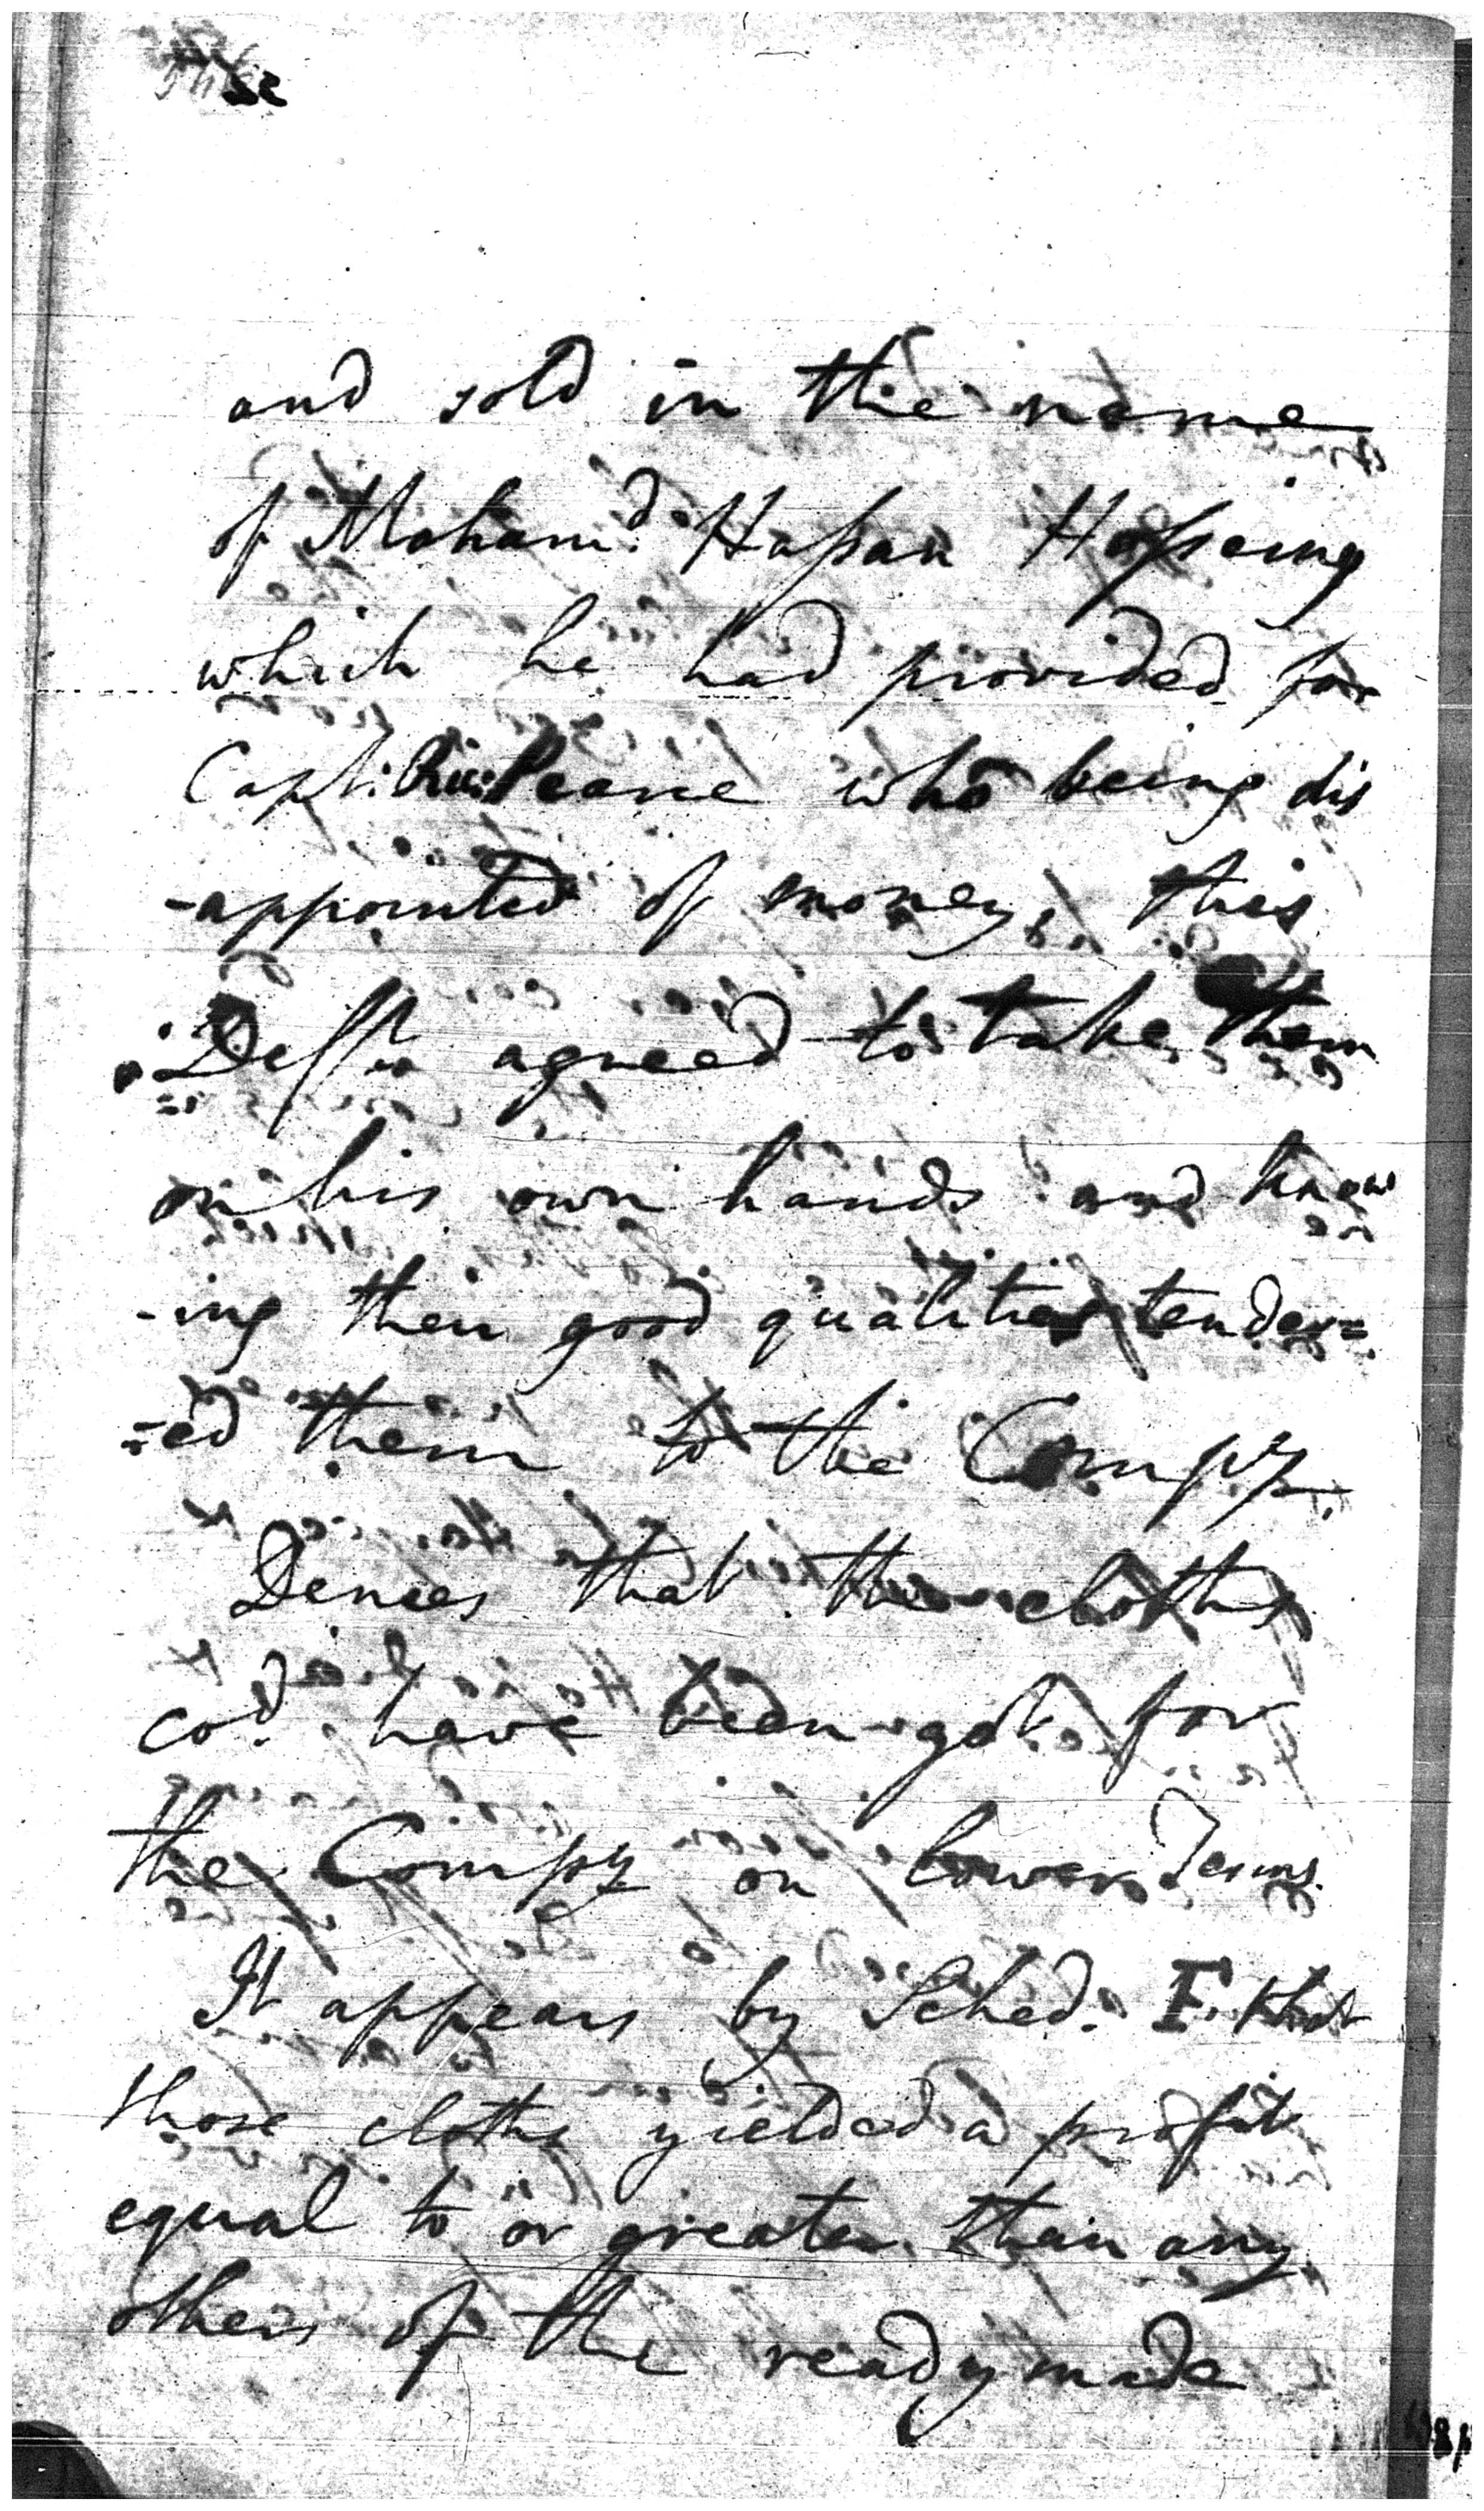 and sold in the name
of Moham.d Hassan Hosseing
which he had provided for
Capt. Pearce who being dis
-appointed of money, this
Deft agreed to take them
on his own hands and know
-ing their good qualities tender=
=ed them to the Compy.
Denies that the cloths
cod. have been got for
the Compy on lower Terms.
It appears by Sched. F. that
those cloths yielded a profit
equal to or greater than any
others of the ready made